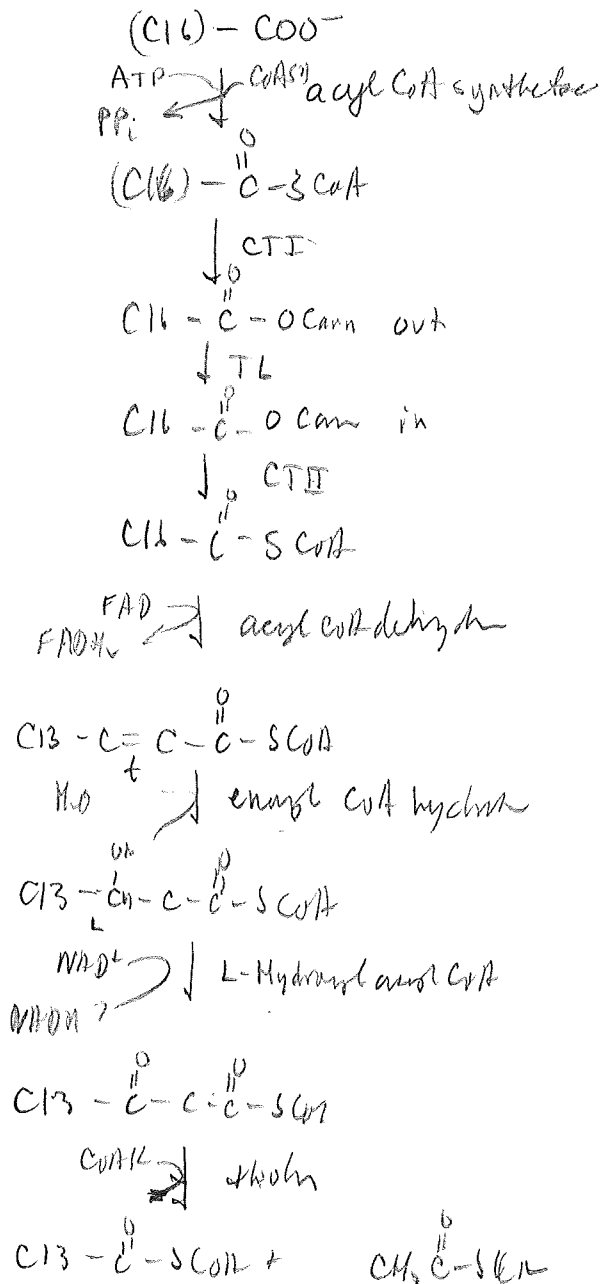 (C16) - COO⁻
ATP CoASH acyl CoA synthetase
PPi
O
(C16) - C - S CoA
CTI
O
C16 - C - O Carn out
TL
O
C16 - C - O Carn in
CTII
O
C16 - C - S CoA
FAD
FADH₂ acyl CoA dehydr
O
C13 - C = C - C - S CoA
t
H₂O enoyl CoA hydrat
OH O
C13 - CH - C - C - S CoA
L
NAD⁺ L-Hydroxyl acyl CoA
NADH
O O
C13 - C - C - C - S CoA
thioln
O O
C13 - C - S CoA + CH₃ C - S